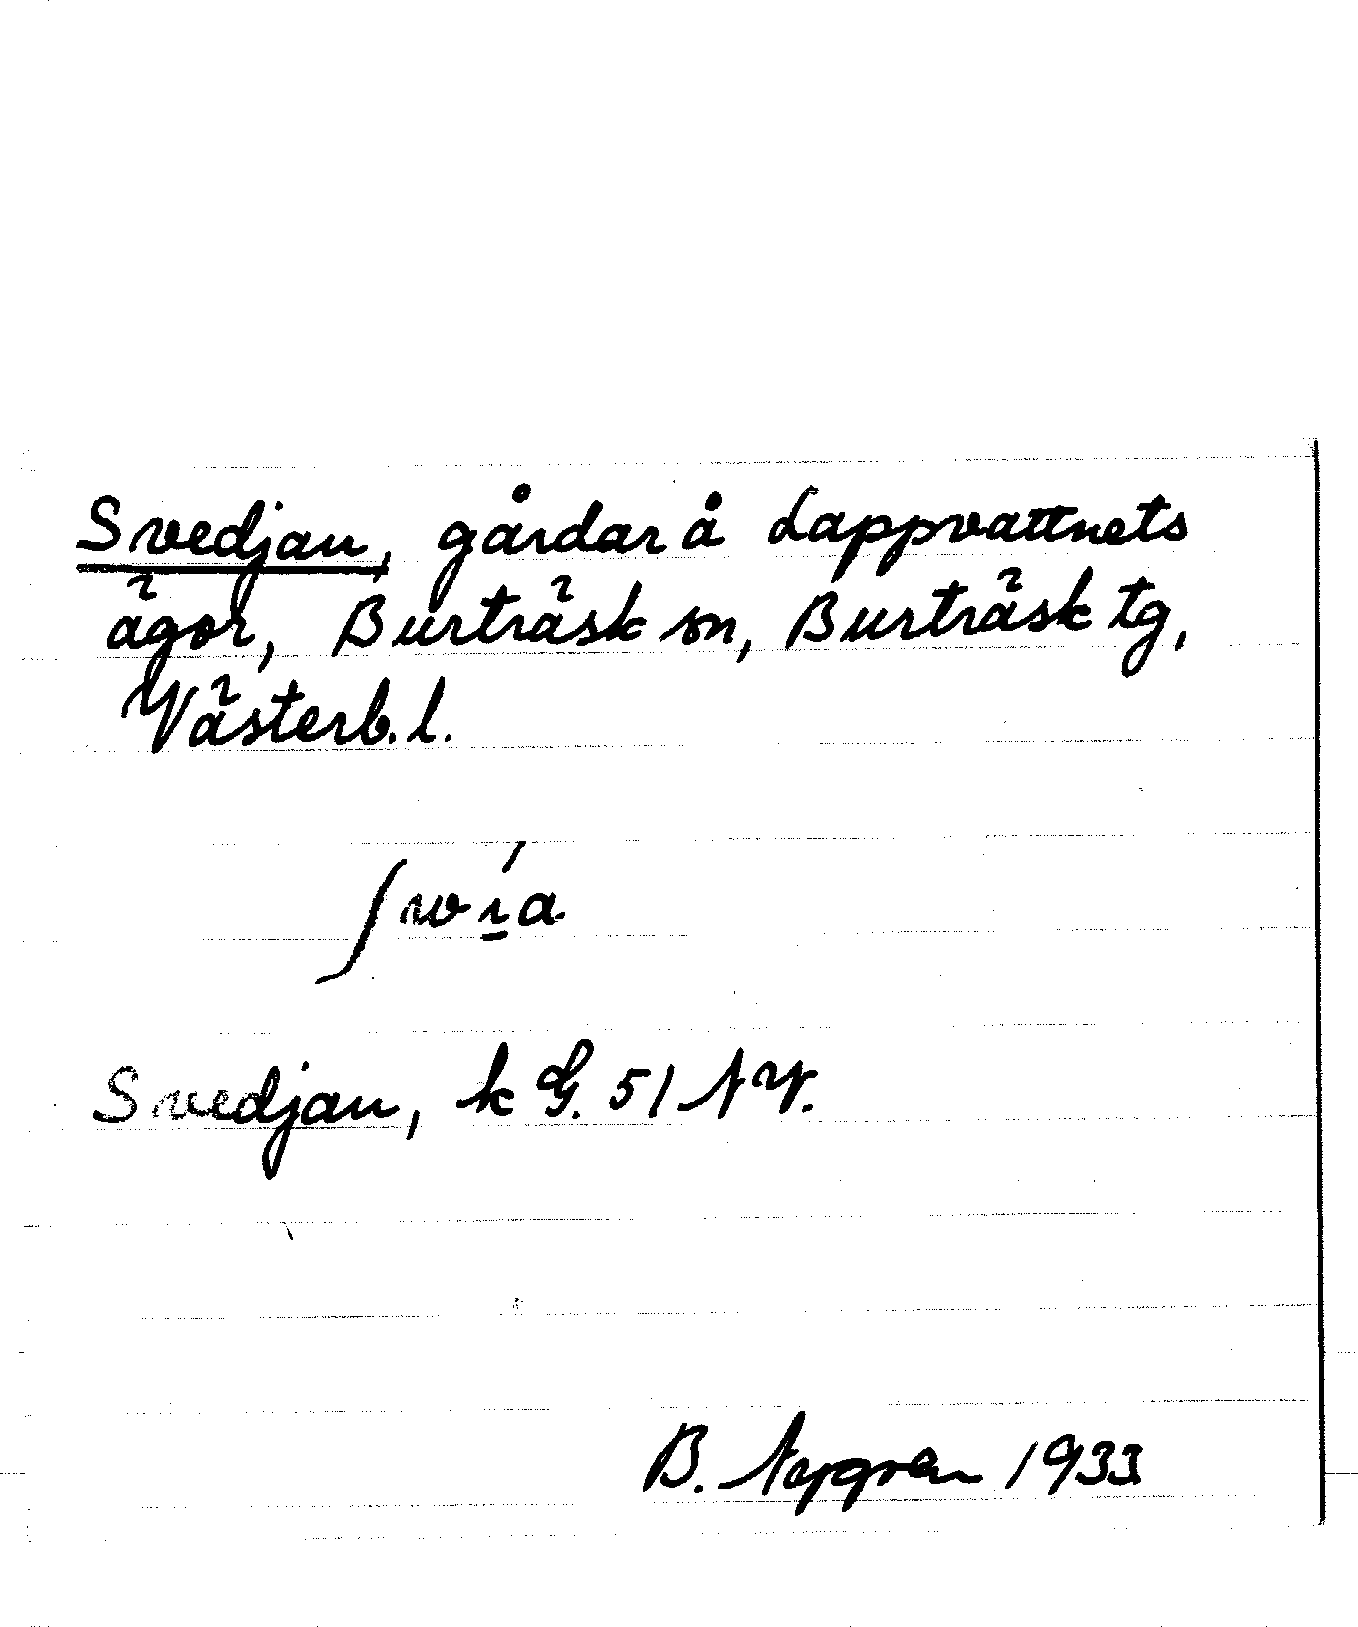 Svedjan, gårdar å Lappvattnets
ägor, Burträsk sn, Burträsk tg,
Västerb. l.
Svedjan, k G. 51 NV.
B. Nygren 1933